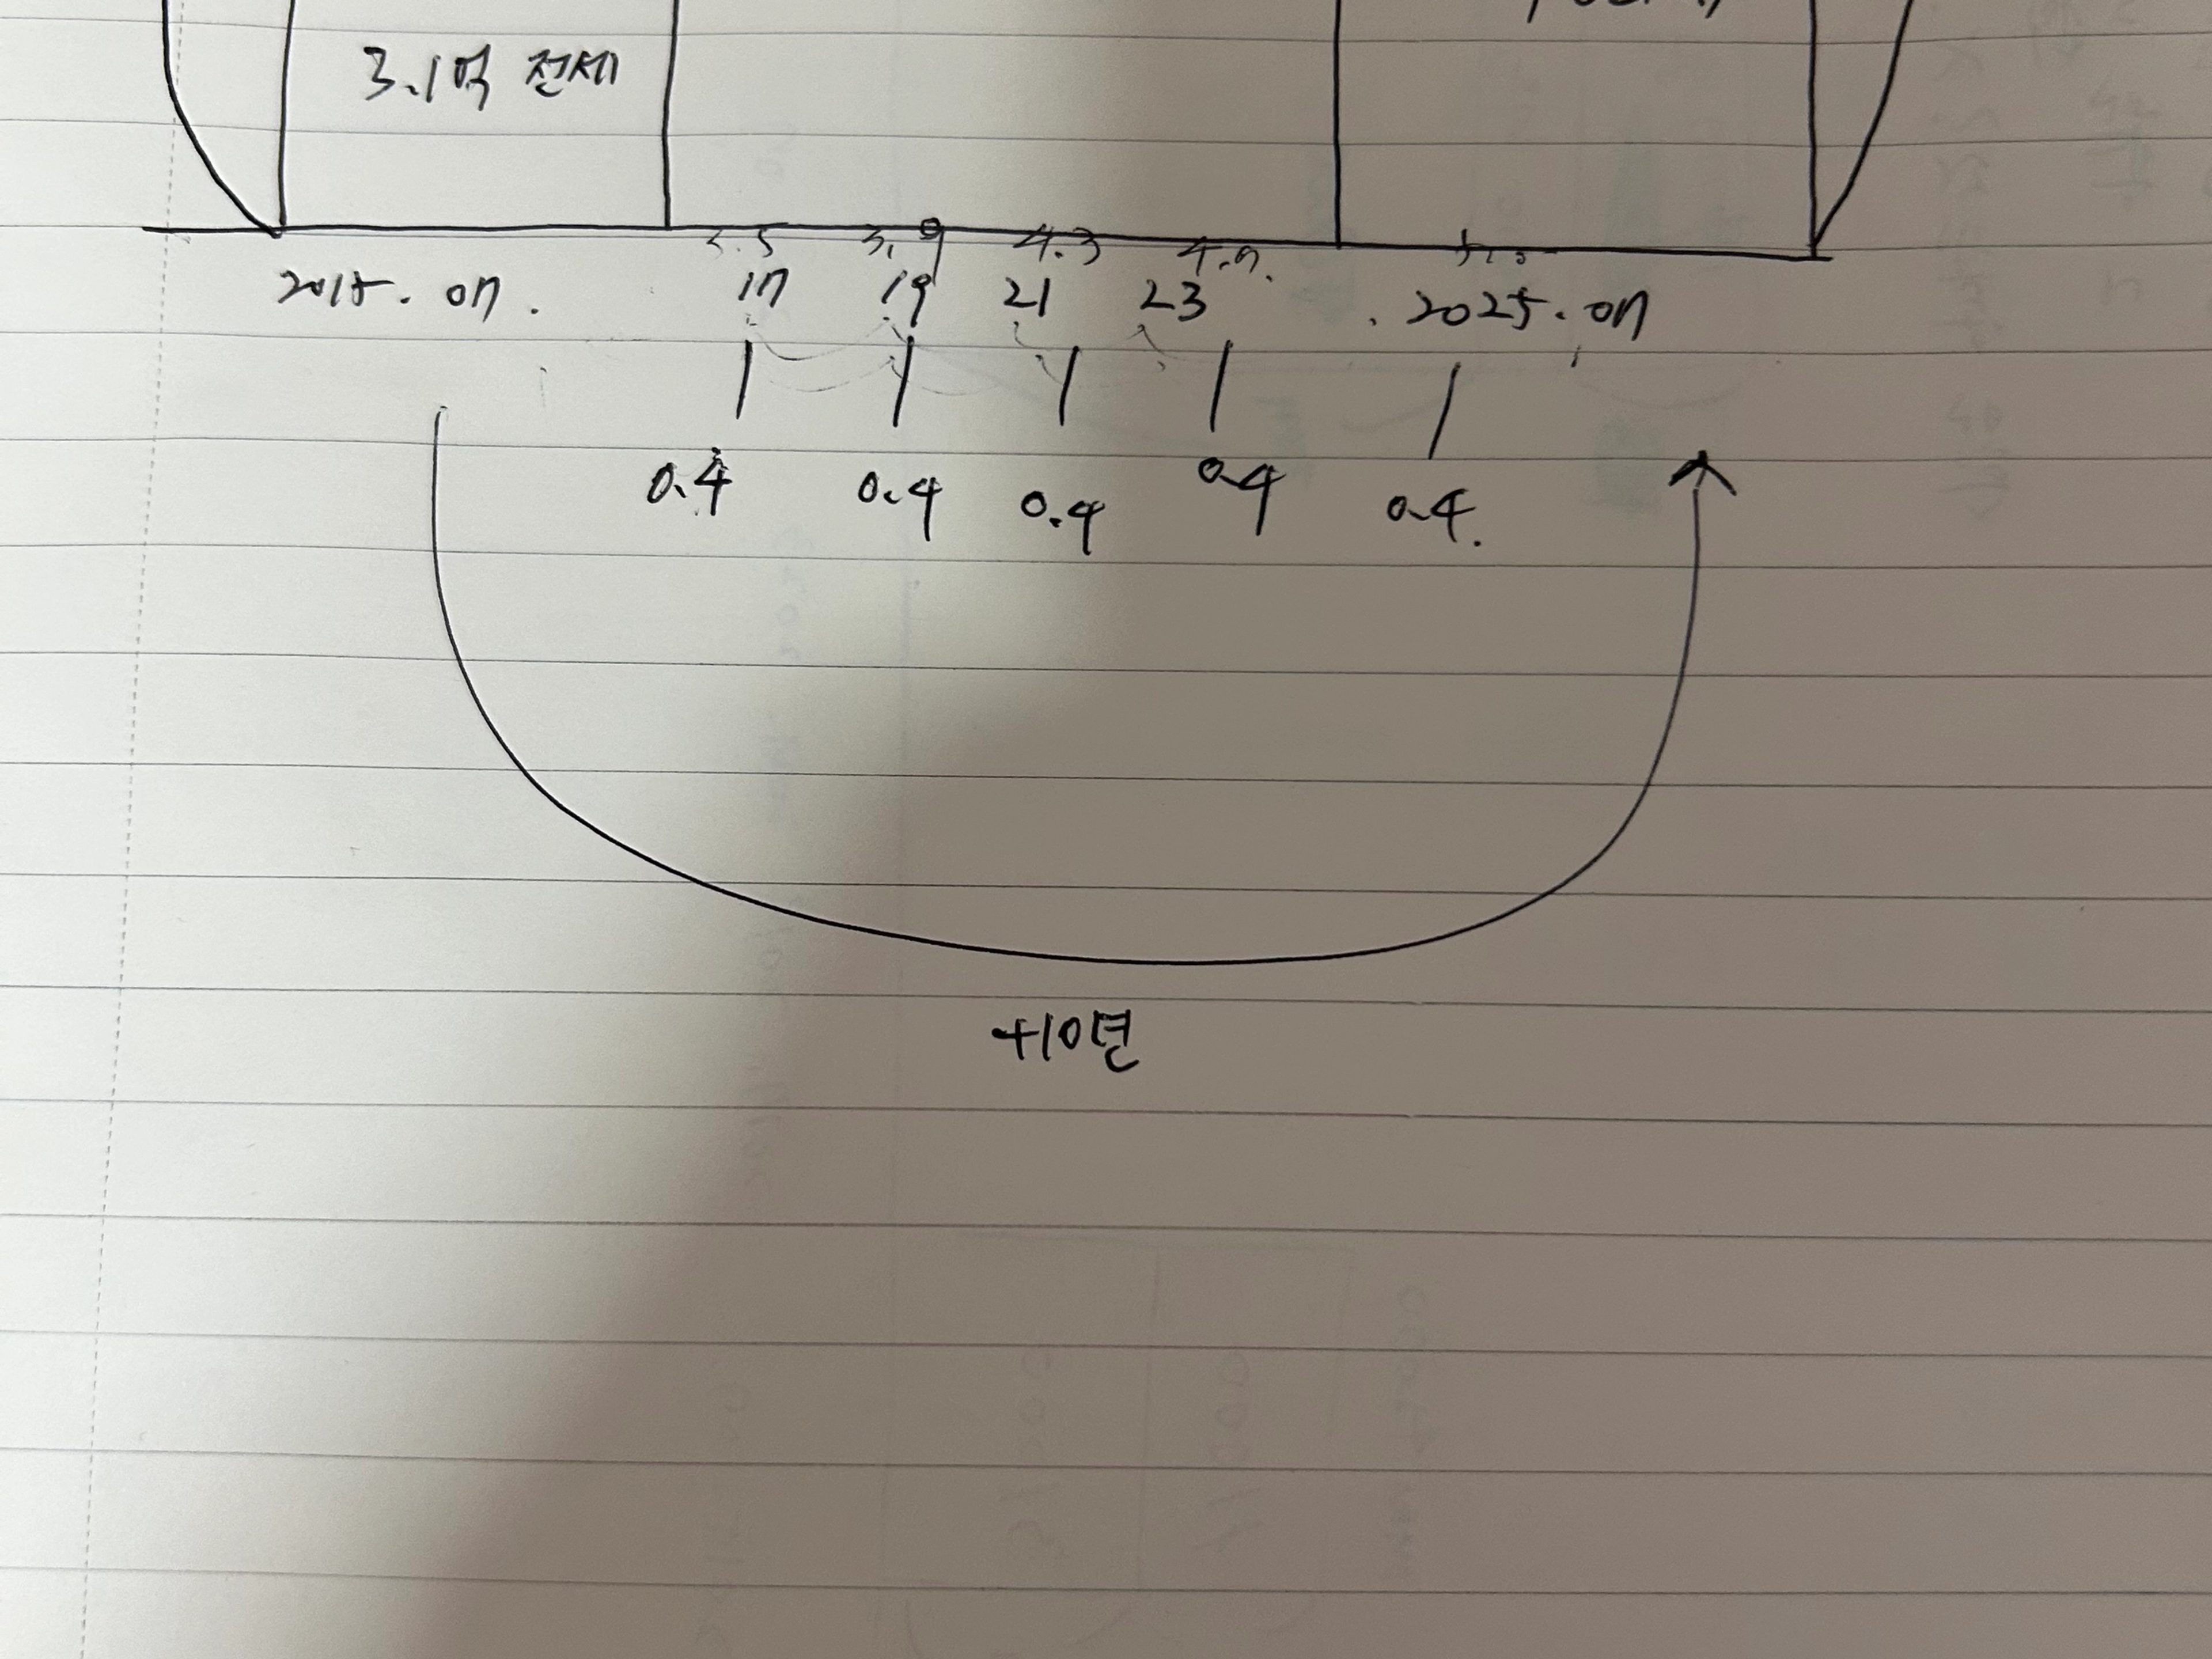 3.1억 전세
3.5 3.9 4.3 4.7.
2015. 07. 17 19 21 23 2025. 07
0.4 0.4 0.4 0.4 0.4.
+10년